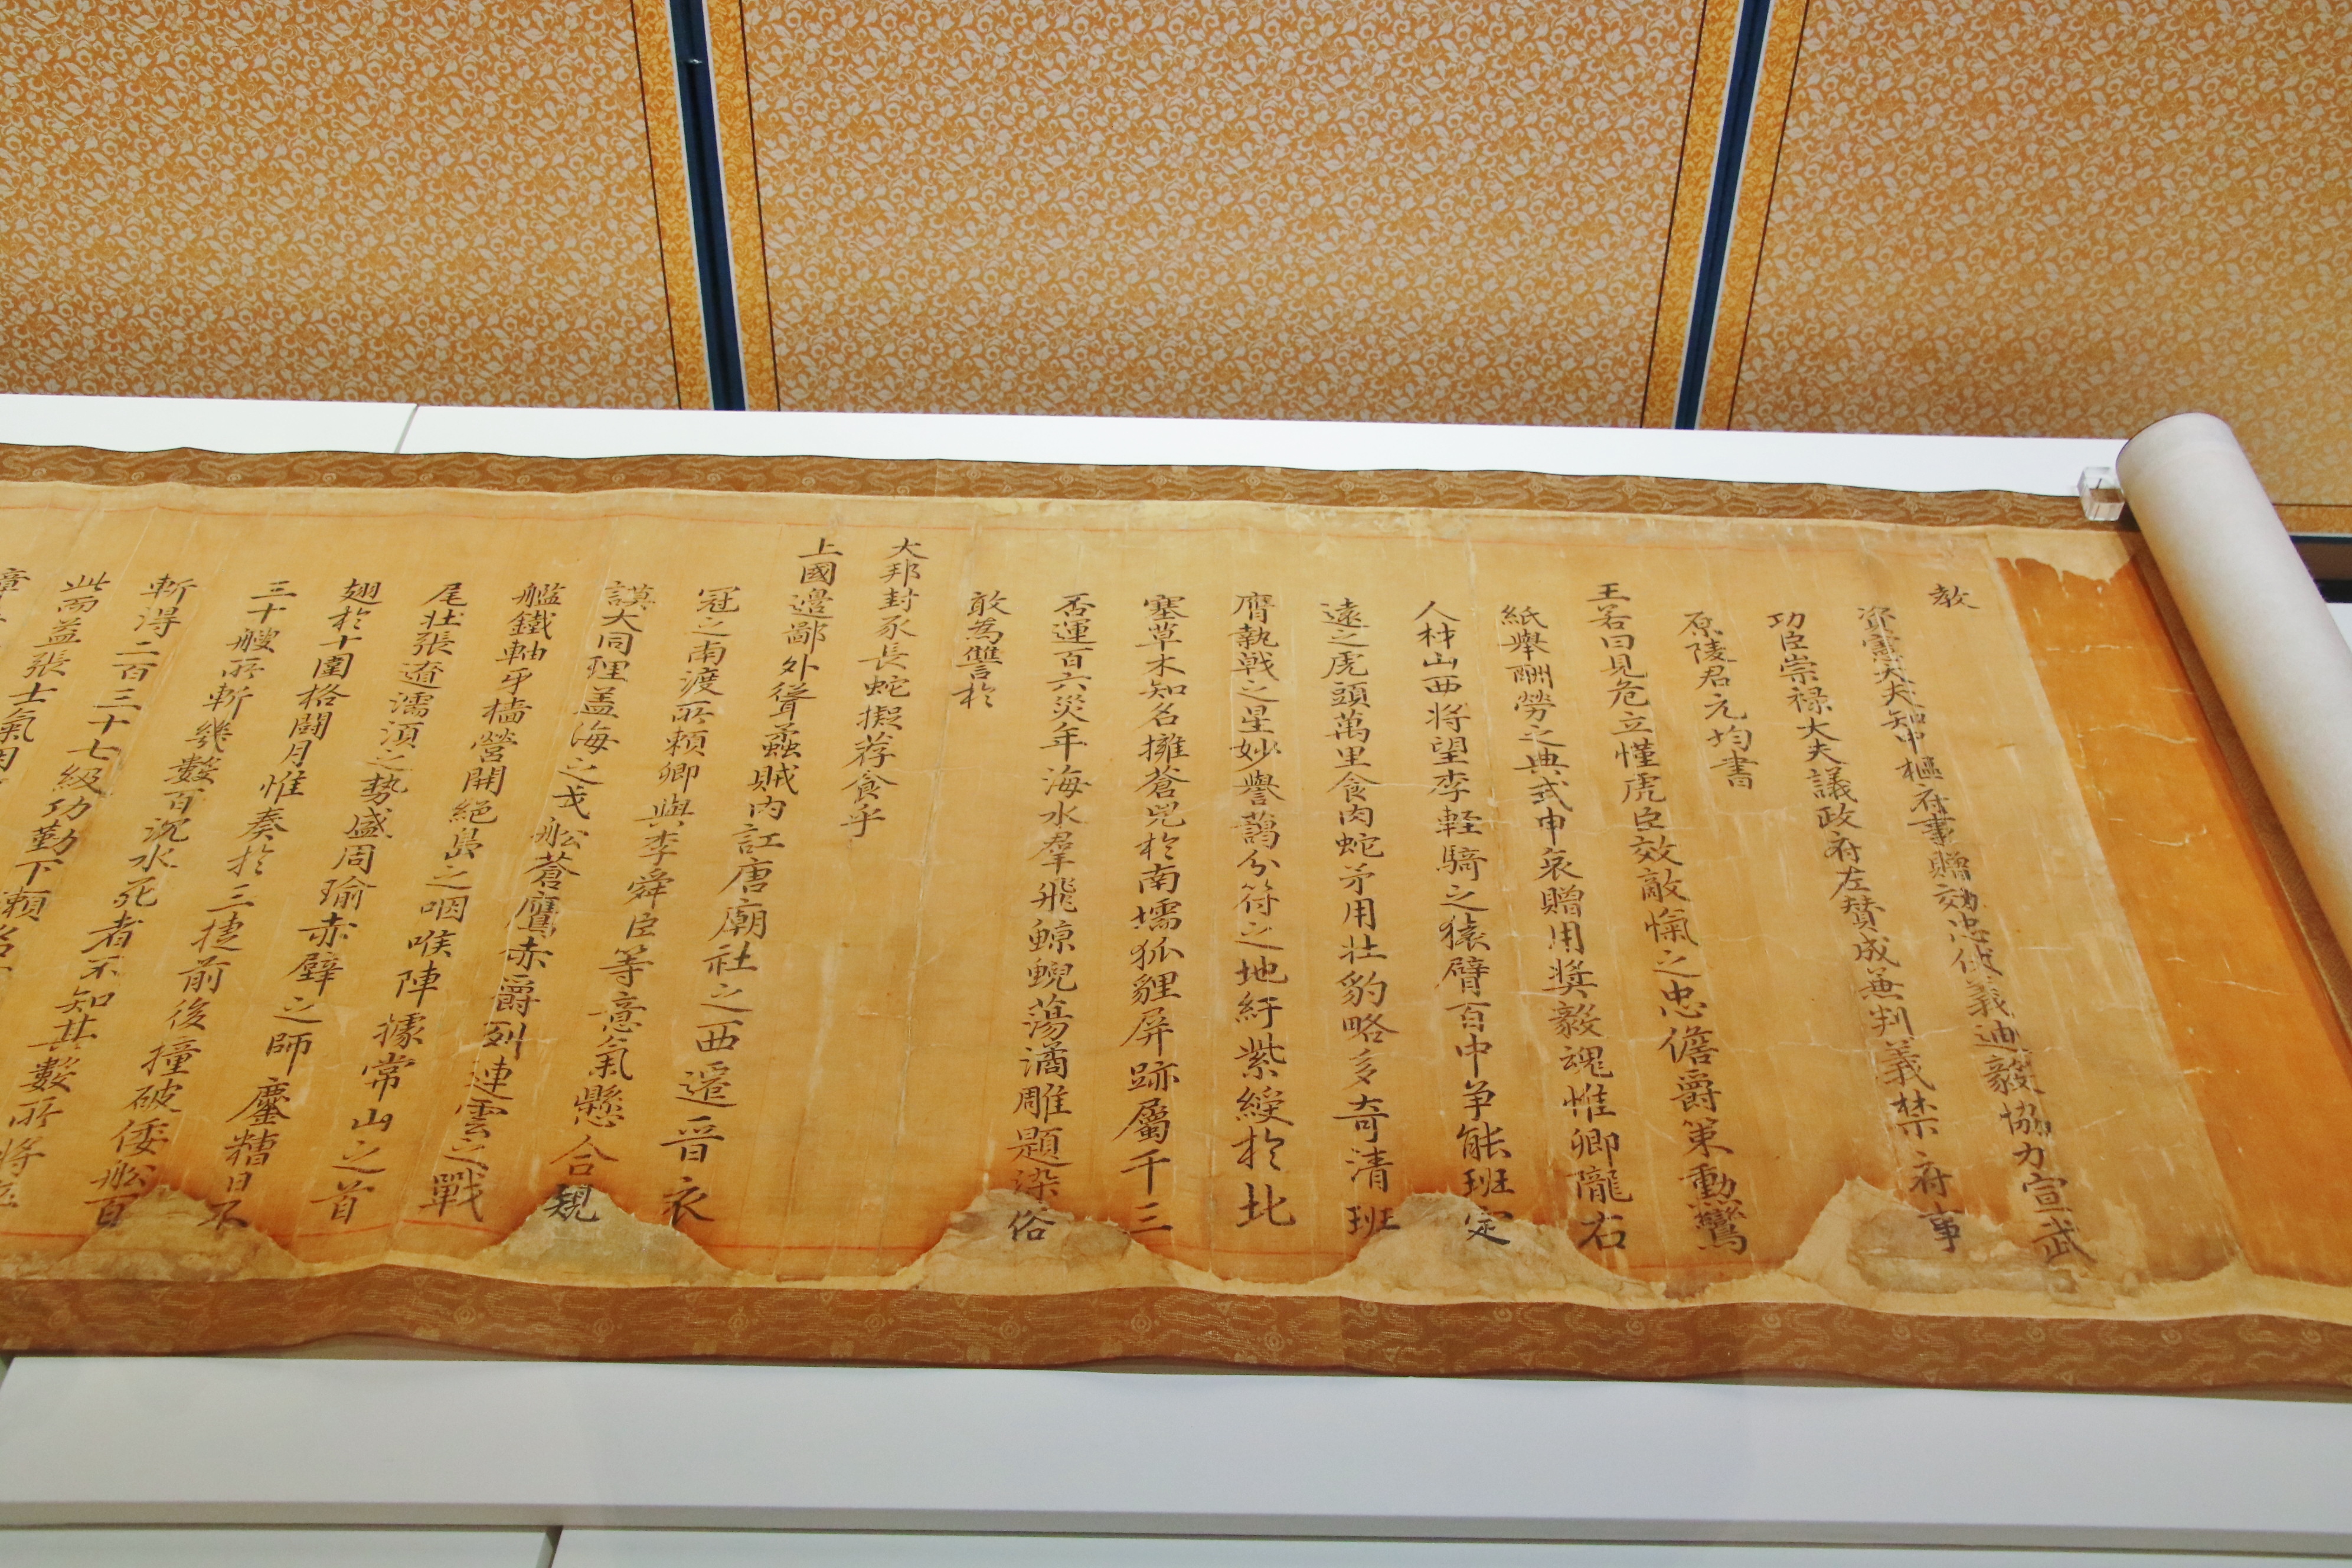 教
資憲大夫知中樞府事贈効忠仗義迪毅協力宣武
功臣崇祿大夫議政府左賛成兼判義禁府事
原陵君元均書
王若曰見危立慬虎臣效敵愾之忠儋爵策勳鸞
紙舉酬勞之典式申哀贈用奬毅魂惟卿隴右
人材山西將望李輕騎之猿臂百中争能班定
遠之虎頭萬里食肉蛇矛用壯豹略多奇清班
膺執戟之星妙譽藹分符之地紆紫綬於北
塞草木知名擁蒼兕於南壖狐貍屏跡屬千三
否運百六災年海水羣飛鯨鯢蕩潏雕題染俗
敢爲讐於
大邦封豕長蛇擬荐食乎
上國邉鄙外聳蟊賊內訌唐廟社之西遷晋衣
冠之南渡所頼卿與李舜臣等意氣懸合規
謨大同理盖海之戈舩蒼鷹赤爵列連雲之戰
艦鐵軸牙檣營開絕島之咽喉陣據常山之首
尾壯張遼濡湏之勢盛周瑜赤壁之師鏖糟日不
翅於十圍格鬪月惟奏於三捷前後撞破倭舩百
三十艘所斬幾數百沉水死者不知其數所將
斬得二百三十七級功勤下頼
此而益張士氣